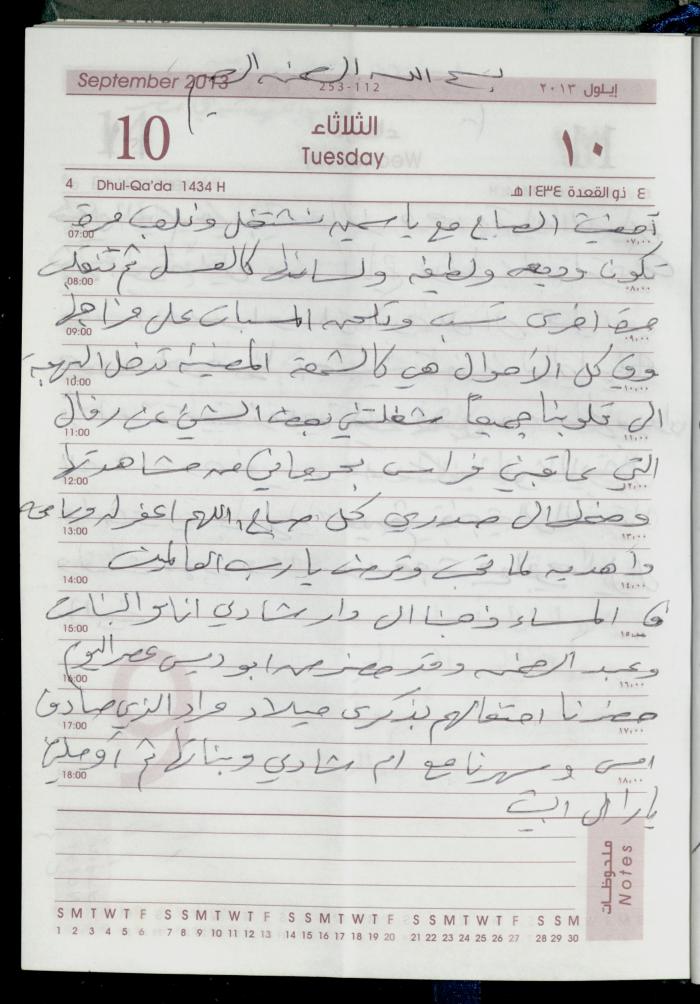 بسم الله الرحمن الرحيم
September 2013 253-112 إيلول ٢٠١٣
10 الثلاثاء ١٠
Tuesday
4 Dhul-Qa'da 1434 H ٤ ذو القعدة ١٤٣٤ هـ
أمضيت الصباح مع ياسمين نشتغل ونلعب مرة
07:00 ٠٧,٠٠
تكون وديعة ولطيفة ولسانها كالعسل ثم تنقلب
08:00 ٠٨,٠٠
مرة اخرى تسب وتلعن المسبات على مزاجها
09:00 ٠٩,٠٠
وفي كل الأحوال هي كالشمعة المضيئة تدخل البهجة
10:00 ١٠,٠٠
الى قلوبنا جميعاً شغلتني بعض الشئ عن
11:00 ١١,٠٠
التي عاقبني فراس بحرماني من مشاهدتها
12:00 ١٢,٠٠
وضمها الى صدري كل صباح، اللهم اغفر له وسامحه
13:00 ١٣,٠٠
واهديه لما تحب وترضى يا رب العالمين
14:00 ١٤,٠٠
في المساء ذهبنا الى دار شادي انا والبنات
15:00 ١٥,٠٠
وعبد الرحمن وقد حضر من ابو ديس عصر اليوم
16:00 ١٦,٠٠
حضرنا احتفالهم بذكرى ميلاد مراد الذي صادف
17:00 ١٧,٠٠
امس وسهرنا مع ام شادي وبناتها ثم أوصلتنا
18:00 ١٨,٠٠
يارا الى البيت
ملحوظات
Notes
S M T W T F S S M T W T F S S M T W T F S S M T W T F S S M
1 2 3 4 5 6 7 8 9 10 11 12 13 14 15 16 17 18 19 20 21 22 23 24 25 26 27 28 29 30